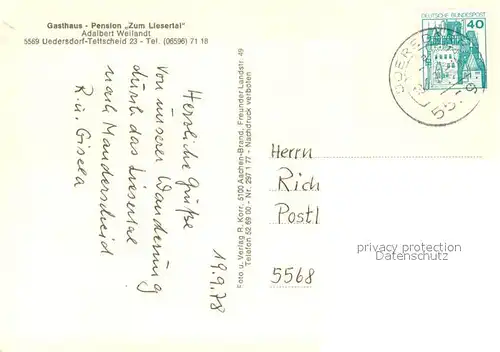 Gasthaus - Pension „Zum Liesertal"
Adalbert Weilandt
5569 Uedersdorf-Tettscheid 23 - Tel. (06596) 71 18
19.9.78
Herzliche Grüße
von unserer Wanderung
durch das Liesertal
nach Manderscheid
R. u. Gisela
Foto u. Verlag R. Korr, 5100 Aachen-Brand, Freunder Landstr. 49
Telefon 52 69 00 - Nr. 297 1 77 - Nachdruck verboten
DEUTSCHE BUNDESPOST
40
Herrn
Rich
Postl
5568
privacy protection
watermark for AKpool.de